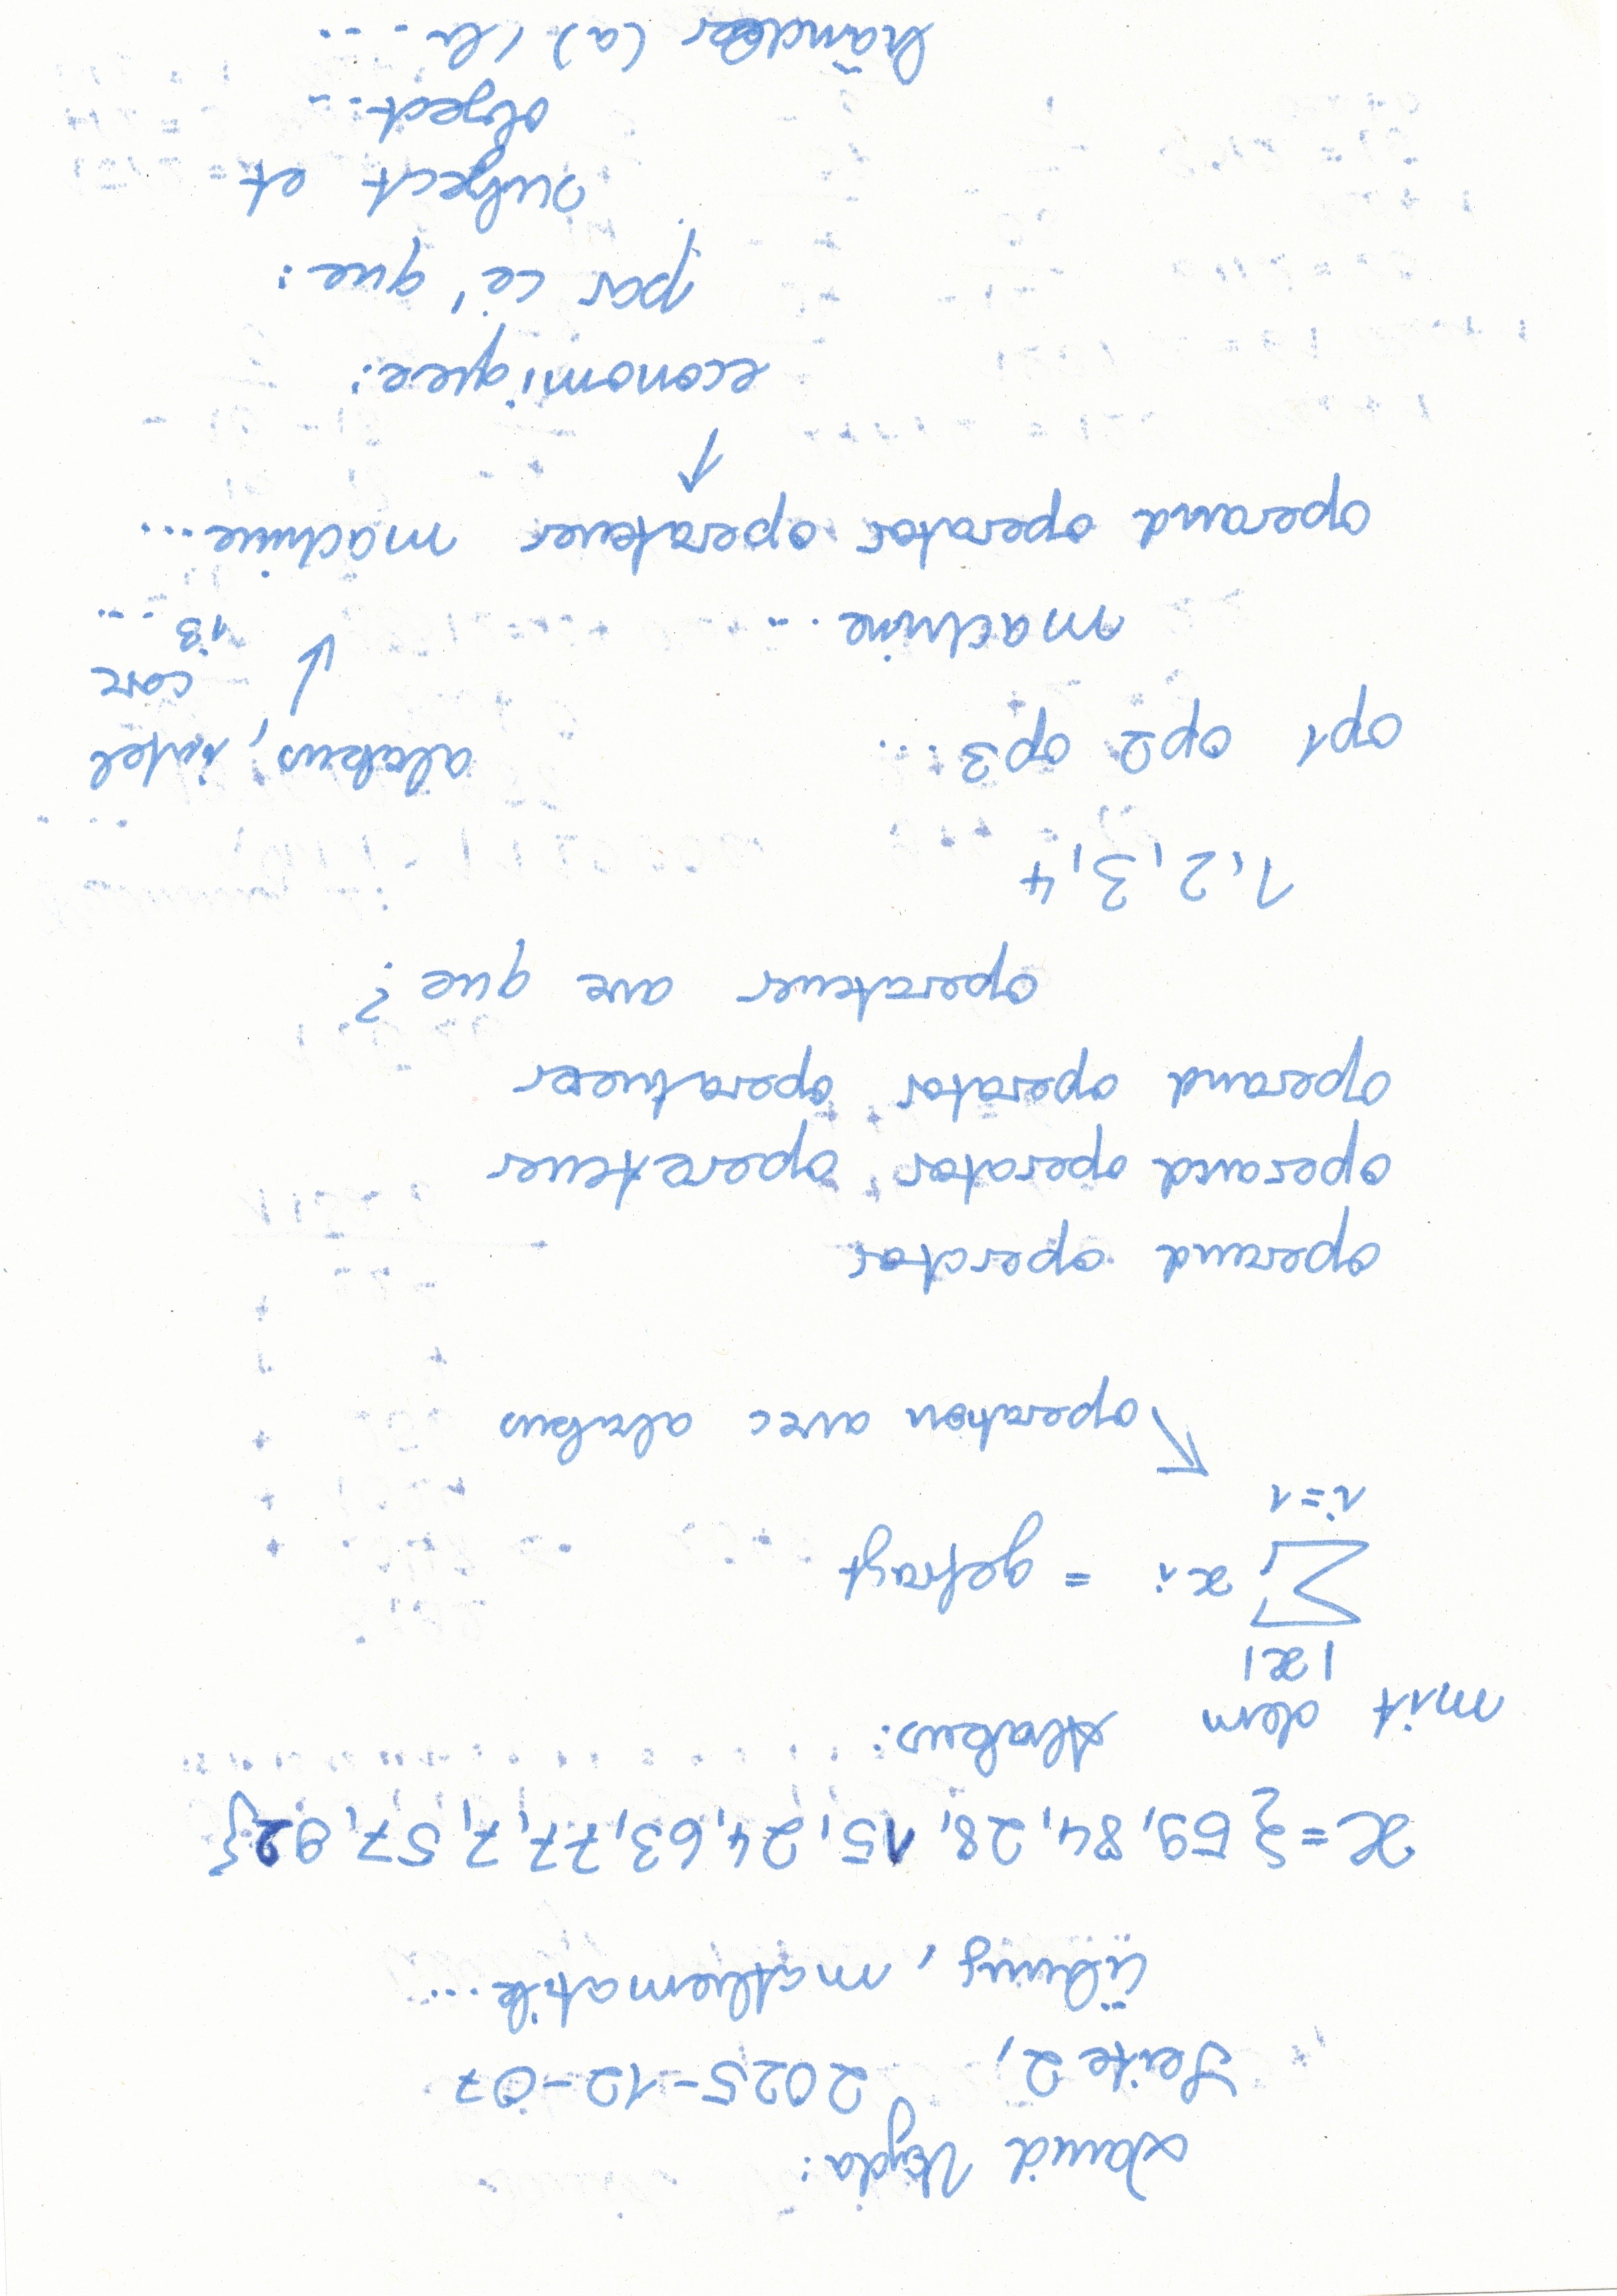 David Vajda:
Seite 2, 2025-12-07
übung, mathematik...
x={59,84,28,15,24,63,77,7,57,92}
mit dem Abakus:
|x|
∑ xi = gefragt
i=1
operation avec abakus
operand operator
operand operator operateuer
operand operator operatueer
operateuer ave que?
1,2,3,4
op1 op2 op3... abakus, intel
core
i3...
machine...
operand operator operateuer machine...
↑
economiquee:
par ce' que:
subject et
object...
händler (a) (b...